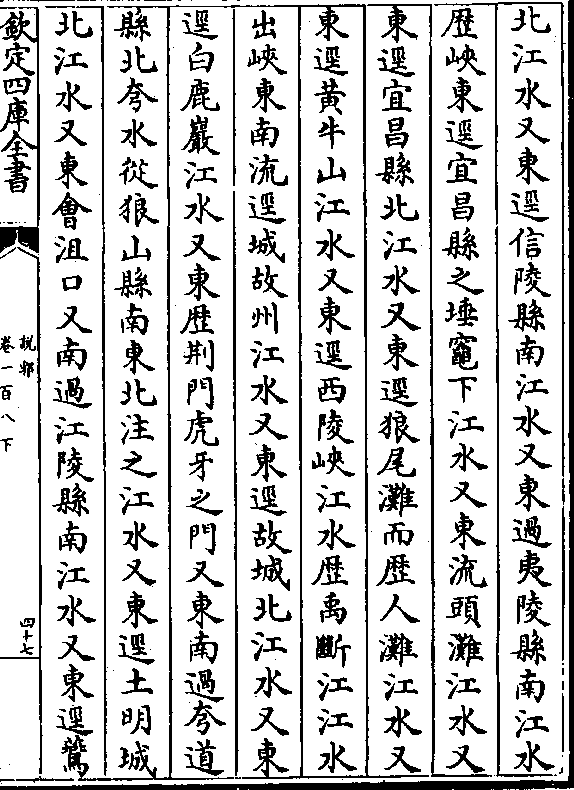 北江水又東逕信陵縣南江水又東過夷陵縣南江水
歴峽東逕宜昌縣之埵竈下江水又東流頭灘江水又
東逕宜昌縣北江水又東逕狼尾灘而歴人灘江水又
東逕黄牛山江水又東逕西陵峽江水歴禹斷江江水
出峽東南流逕城故州江水又東逕故城北江水又東
逕白鹿巖江水又東歴荆門虎牙之門又東南過夸道
縣北夸水從狼山縣南東北注之江水又東逕土明城
北江水又東會沮口又南過江陵縣南江水又東逕鷰
欽定四庫全書
説郛
卷一百八下
四十七